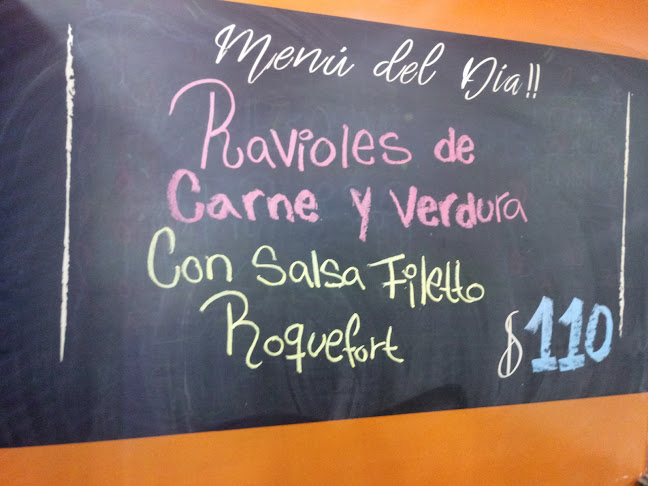 Menú del Dia!!
Ravioles de
Carne y Verdura
Con Salsa Filetto
Roquefort
$110